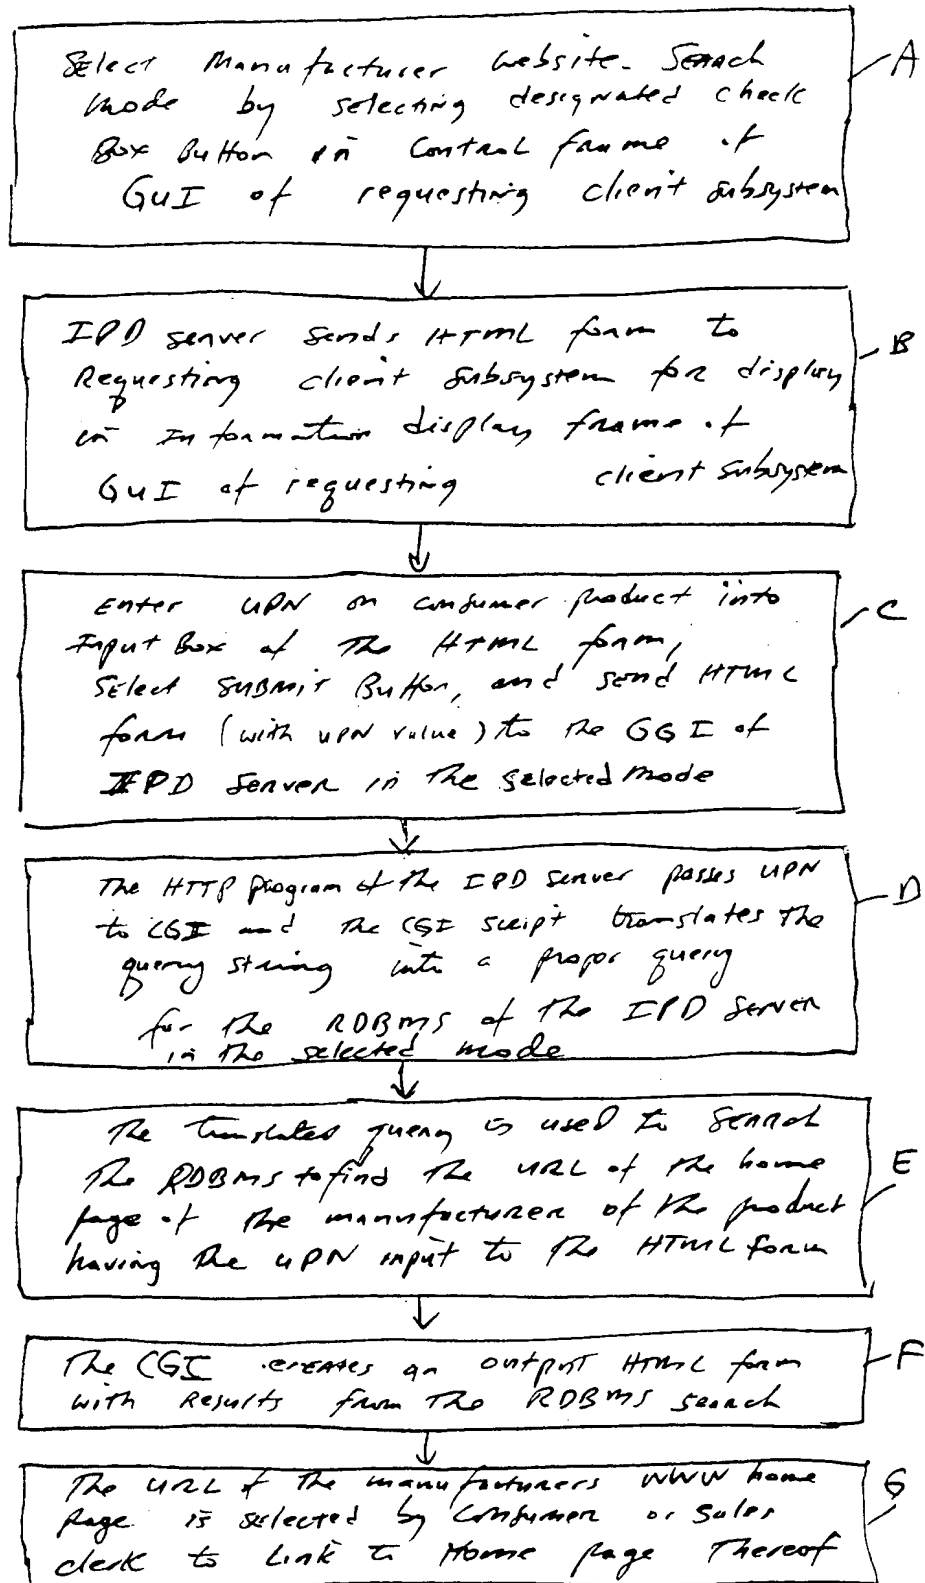 Select Manufacturer Website-Search
Mode by selecting designated check
Box Button in Control frame of
GUI of requesting client subsystem
A
IPD server sends HTML form to
Requesting client subsystem for display
in Information display frame of
GUI of requesting client subsystem
B
Enter UPN on consumer product into
Input Box of the HTML form,
Select SUBMIT Button, and send HTML
form (with UPN value) to the GGI of
IPD Server in the selected mode
C
The HTTP program of the IPD Server passes UPN
to CGI and the CGI script translates the
query string into a propor query
for the RDBMS of the IPD Server
in the selected mode
D
The translated query is used to Search
The RDBMS to find the URL of the home
page of the manufacturer of the product
having the UPN input to the HTML form
E
The CGI creates an output HTML form
with Results from the RDBMS search
F
The URL of the manufacturers WWW home
Page is selected by Consumer or Sales
clerk to Link to Home page Thereof
G